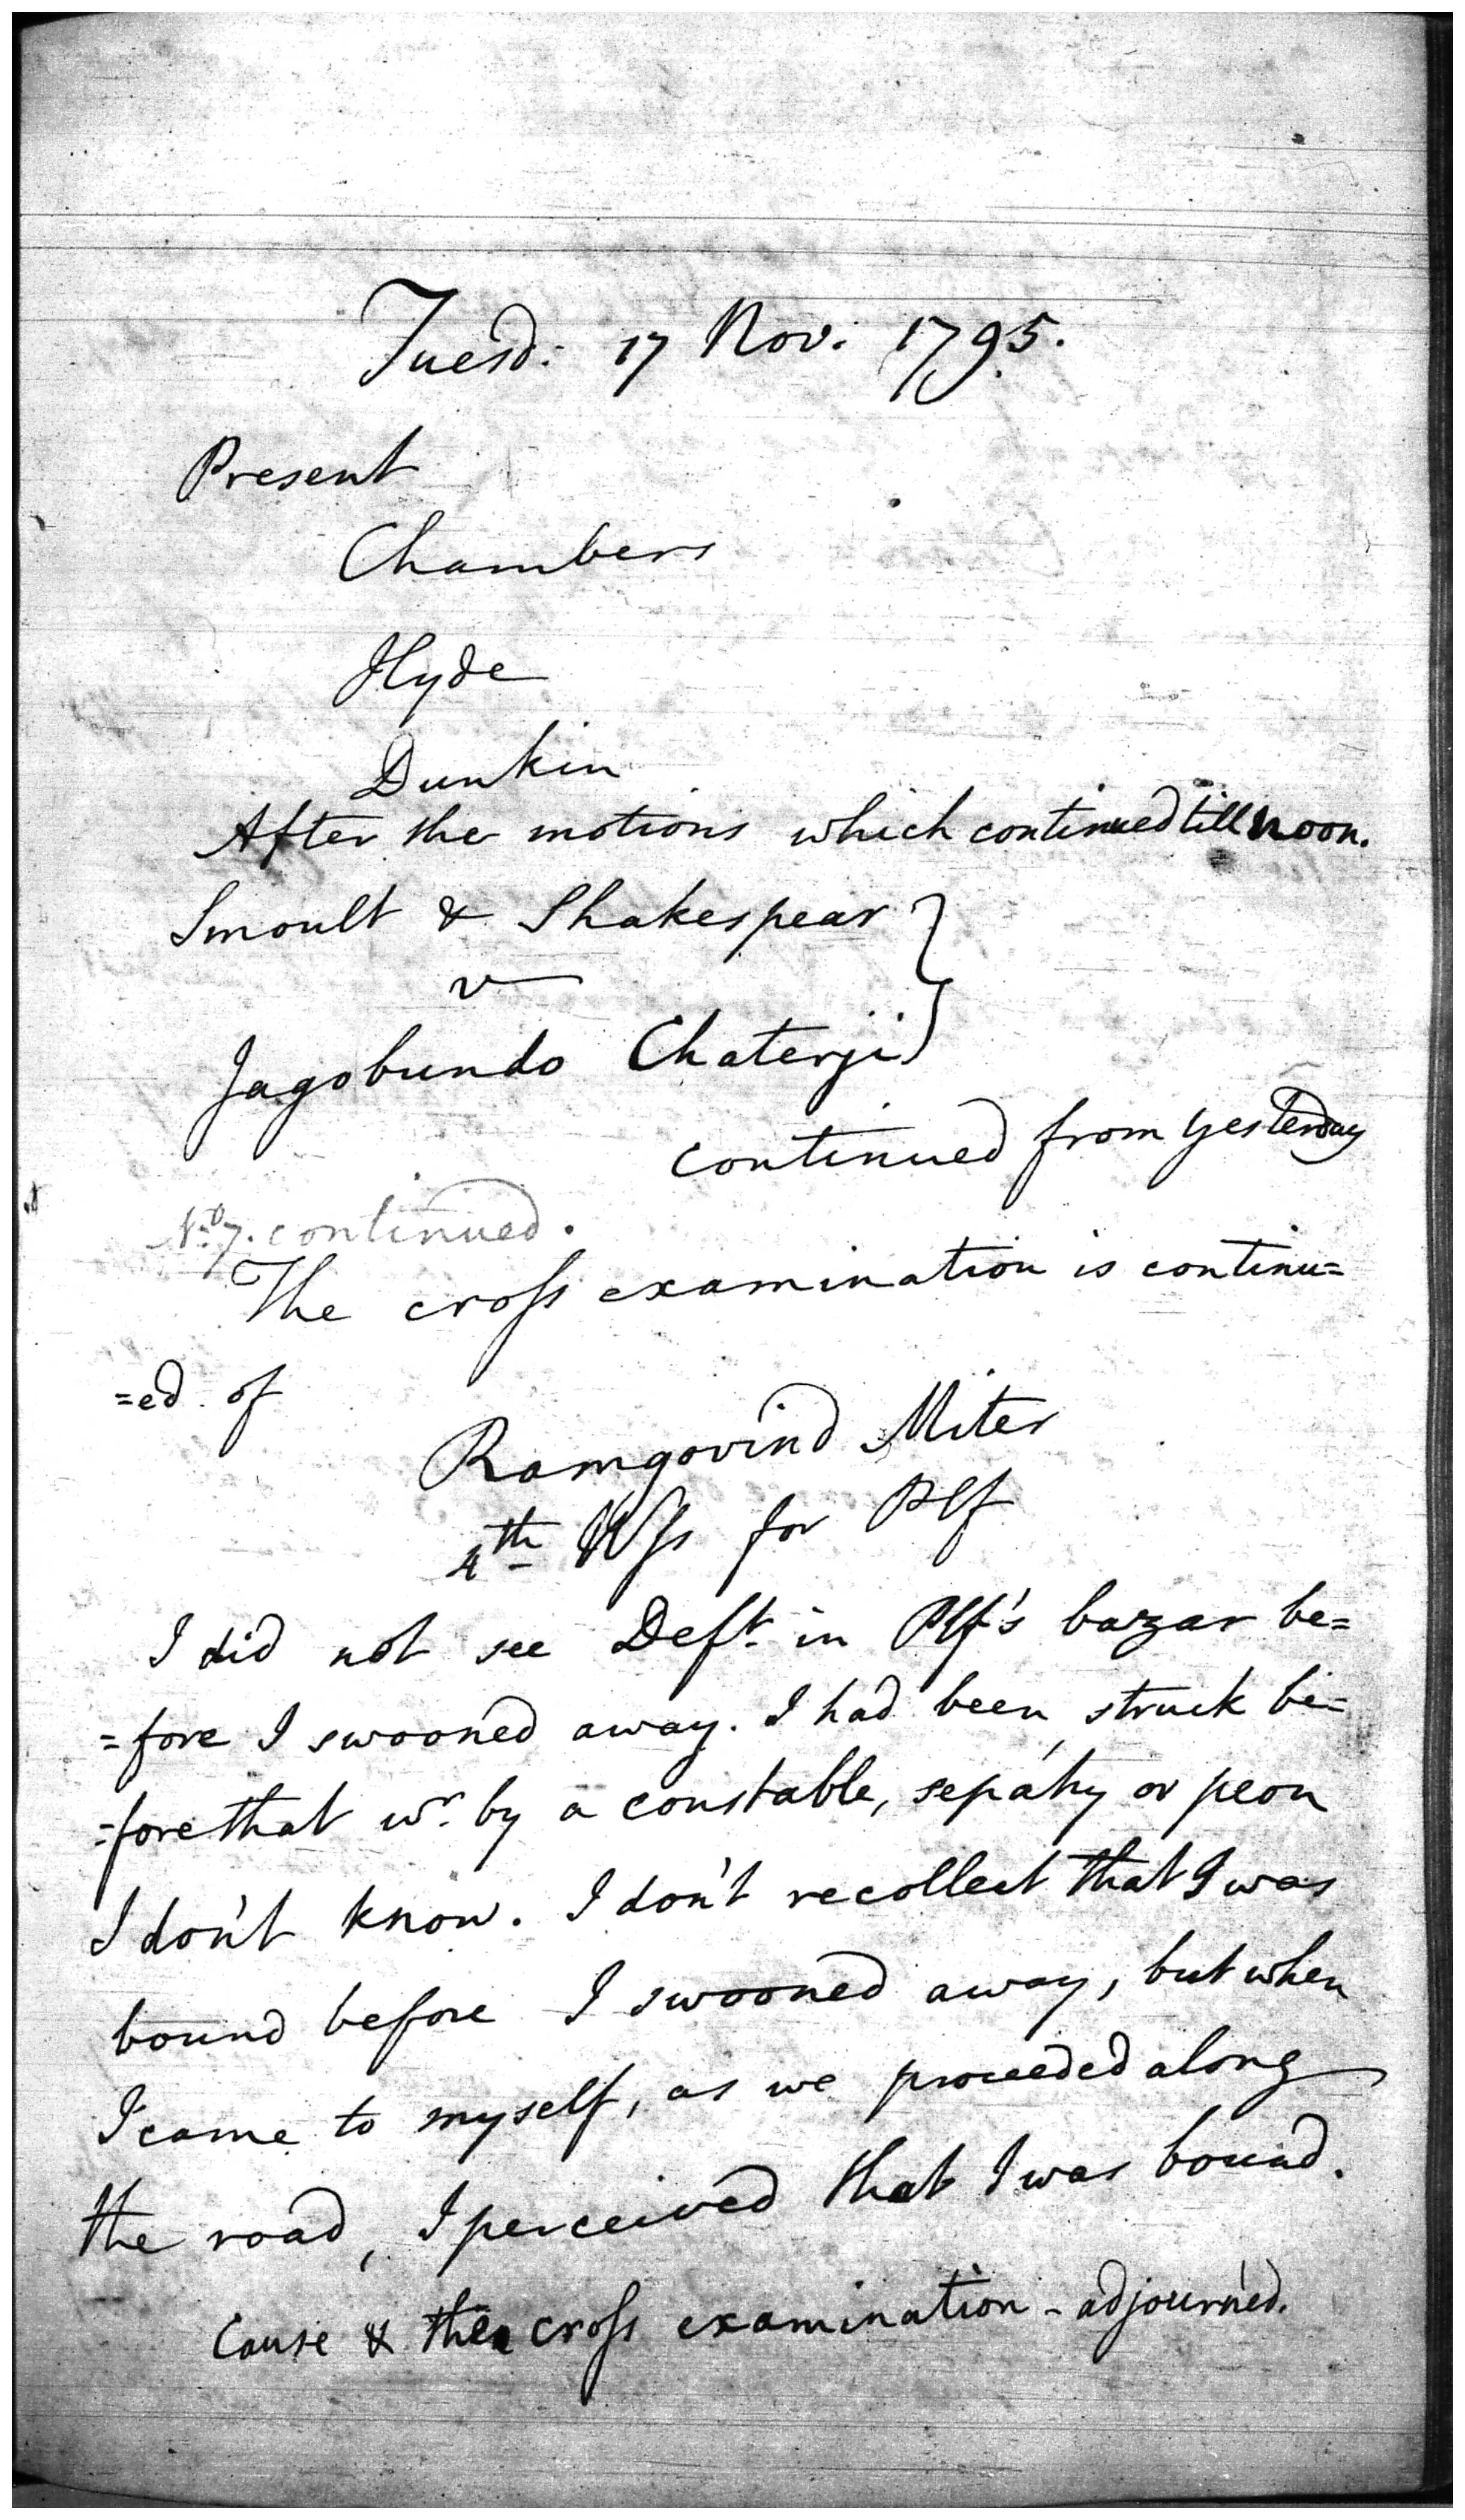 Tuesd: 17 Nov: 1795.
Present
Chambers
Hyde
Dunkin
After the motions which continued till noon.
Smoult & Shakespear }
v
Jagobundo Chaterji
continued from yesterday
No. 7. continued.
The cross examination is continu=
=ed of
Ramgovind Miter
4th Wss for Plf
I did not see Deft. in Plf's bazar be=
=fore I swooned away. I had been struck be=
=fore that wr. by a constable, sepahy or peon
I don't know. I don't recollect that I was
bound before I swooned away, but when
I came to myself, as we proceeded along
the road, I perceived that I was bound.
Cause & the cross examination - adjourned.